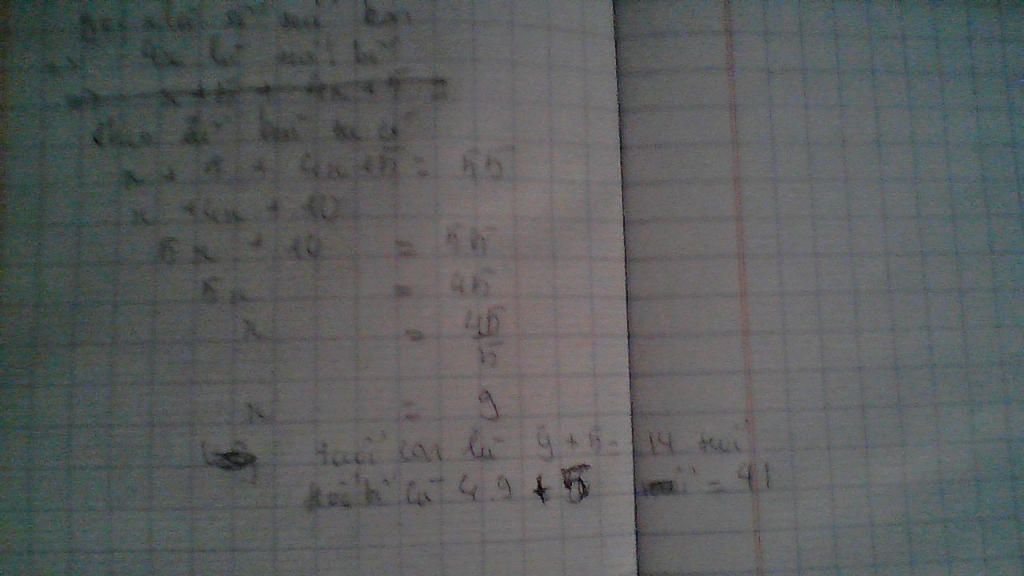 là tuổi bố
x + 5 + 4x + 5 =
Theo đề bài ta có
x + 5 + 4x + 5 = 55
x + 4x + 10
5x + 10 = 55
5x = 45
x = 45/5
x = 9
tuổi con là 9 + 5 = 14 tuổi
tuổi bố là 4.9 + 5 = 41